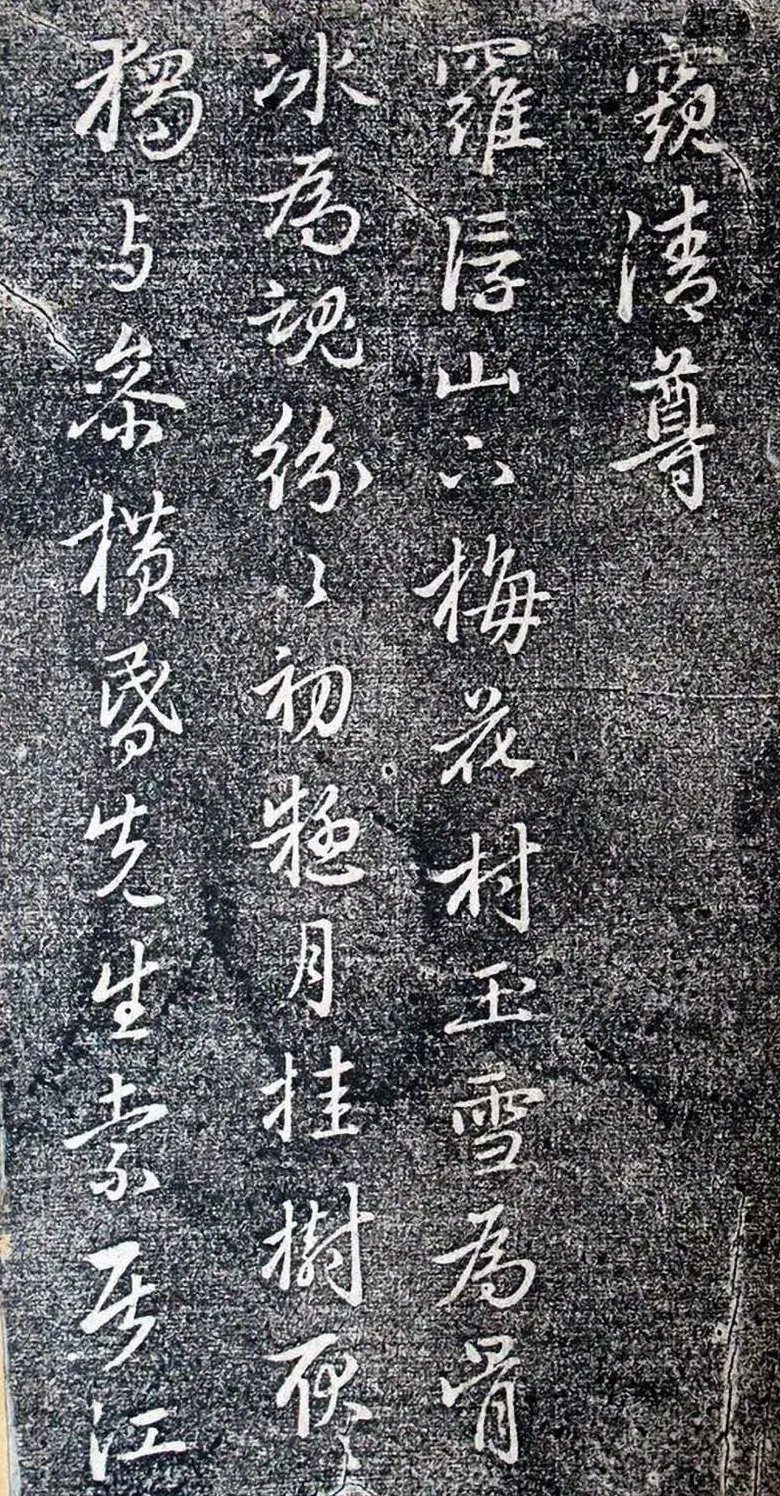 窺清尊
羅浮山下梅花村玉雪為骨
冰為魂紛〻初疑月挂樹耿〻
獨与參橫昏先生索居江